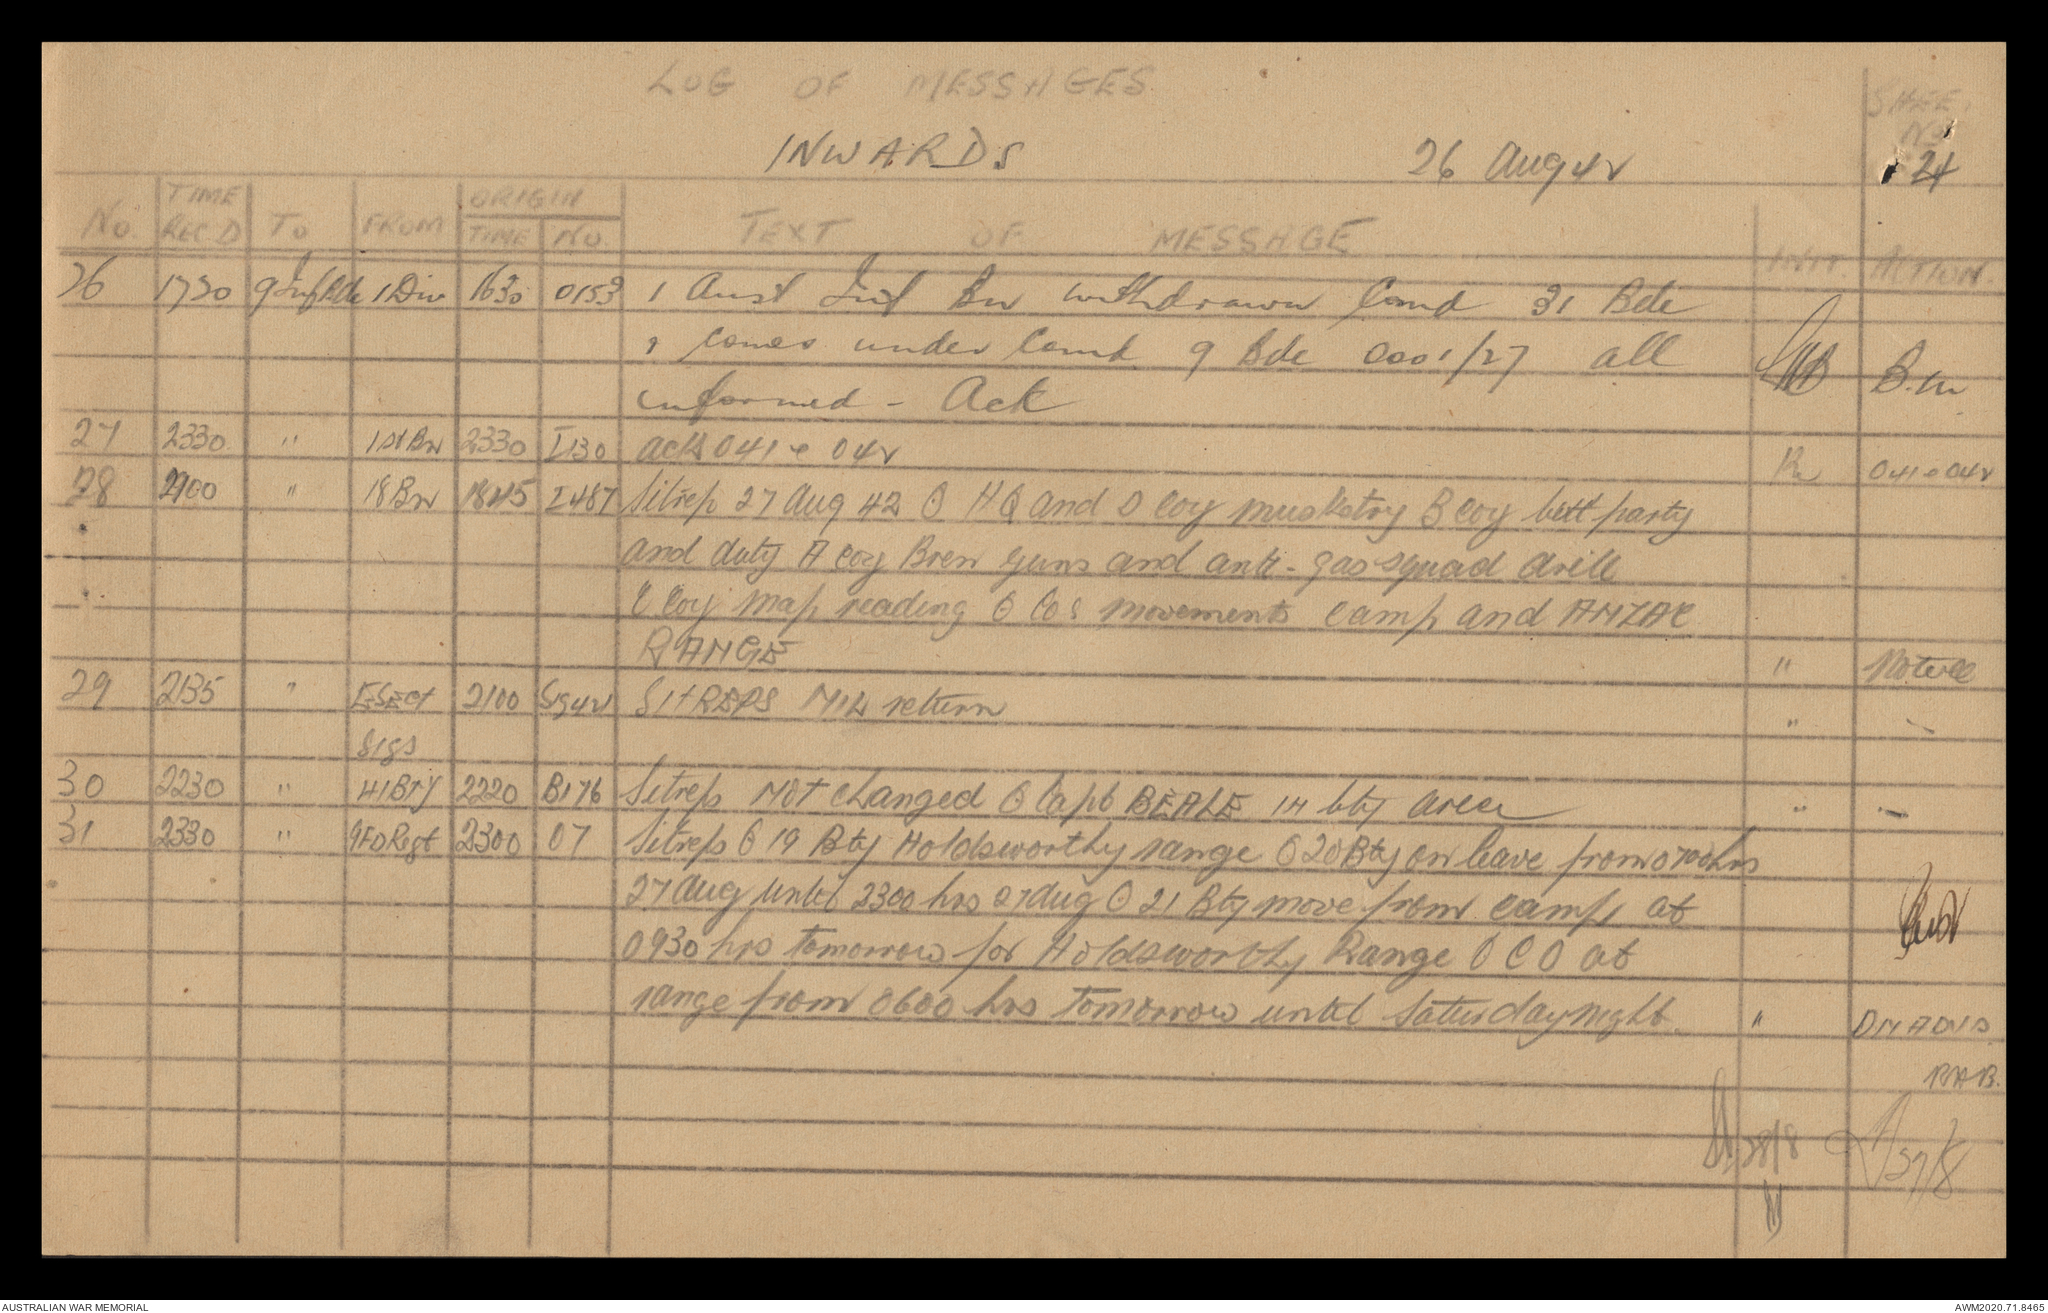 LOG OF MESSAGES
INWARDS 26 Aug 42
SHEET
No
24
No. TIME REC'D TO FROM ORIGIN TIME NO. TEXT OF MESSAGE INIT. ACTION.
26 1730 9 Inf Bde 1 Div 1630 0153 1 Aust Inf Bn withdrawn Comd 31 Bde
& comes under Comd 9 Bde 0001/27 all B.M
informed - Ack
27 2330 " 1st Bn 2330 I130 acks 041 & 042 041 & 042
28 2100 " 18 Bn 1845 I487 Sitrep 27 Aug 42 O HQ and D Coy musketry B Coy butt party
and duty A Coy Bren guns and anti-gas squad drill
C Coy map reading O COs movements camp and ANZAC
RANGE " Noted
29 2135 " E Sect 2100 Sig42 SITREPS NIL return "
Sigs
30 2230 " 41 BTY 2220 B176 Sitrep Not changed O Capt BEALE IN bty area "
31 2330 " 9 FD Regt 2300 07 Sitrep O 19 Bty Holdsworthy range O 20 Bty on leave from 0700 hrs
27 Aug until 2300 hrs 27 Aug O 21 Bty move from camp at
0930 hrs tomorrow for Holdsworthy Range O CO at
range from 0600 hrs tomorrow until Saturday night. "
RAB.
28/8 27/8
AUSTRALIAN WAR MEMORIAL AWM2020.71.8465